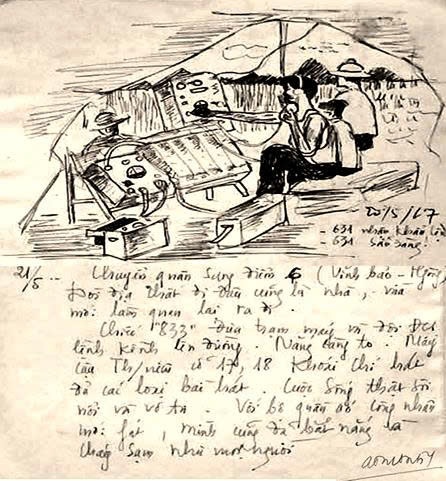 20/5/67
- 631 nhận khẩu lệnh
- 631 sẵn sàng!
21/5 -- Chuyển quân sang điểm 6 (Vĩnh bảo - Hphòng)
Đời địa chất đi đâu cũng là nhà, vừa
mới làm quen lại ra đi.
Chiếc "833" đưa trạm máy và đội
kềnh lên đường. Nắng càng to.
cậu 17, 18 khoái chí hát
đủ các loại bài hát. Cuộc sống thật sôi
nổi và vô tư. Với bộ quần áo công nhân
mới, mình cũng đã bắt nắng và
cháy sạm như mọi người